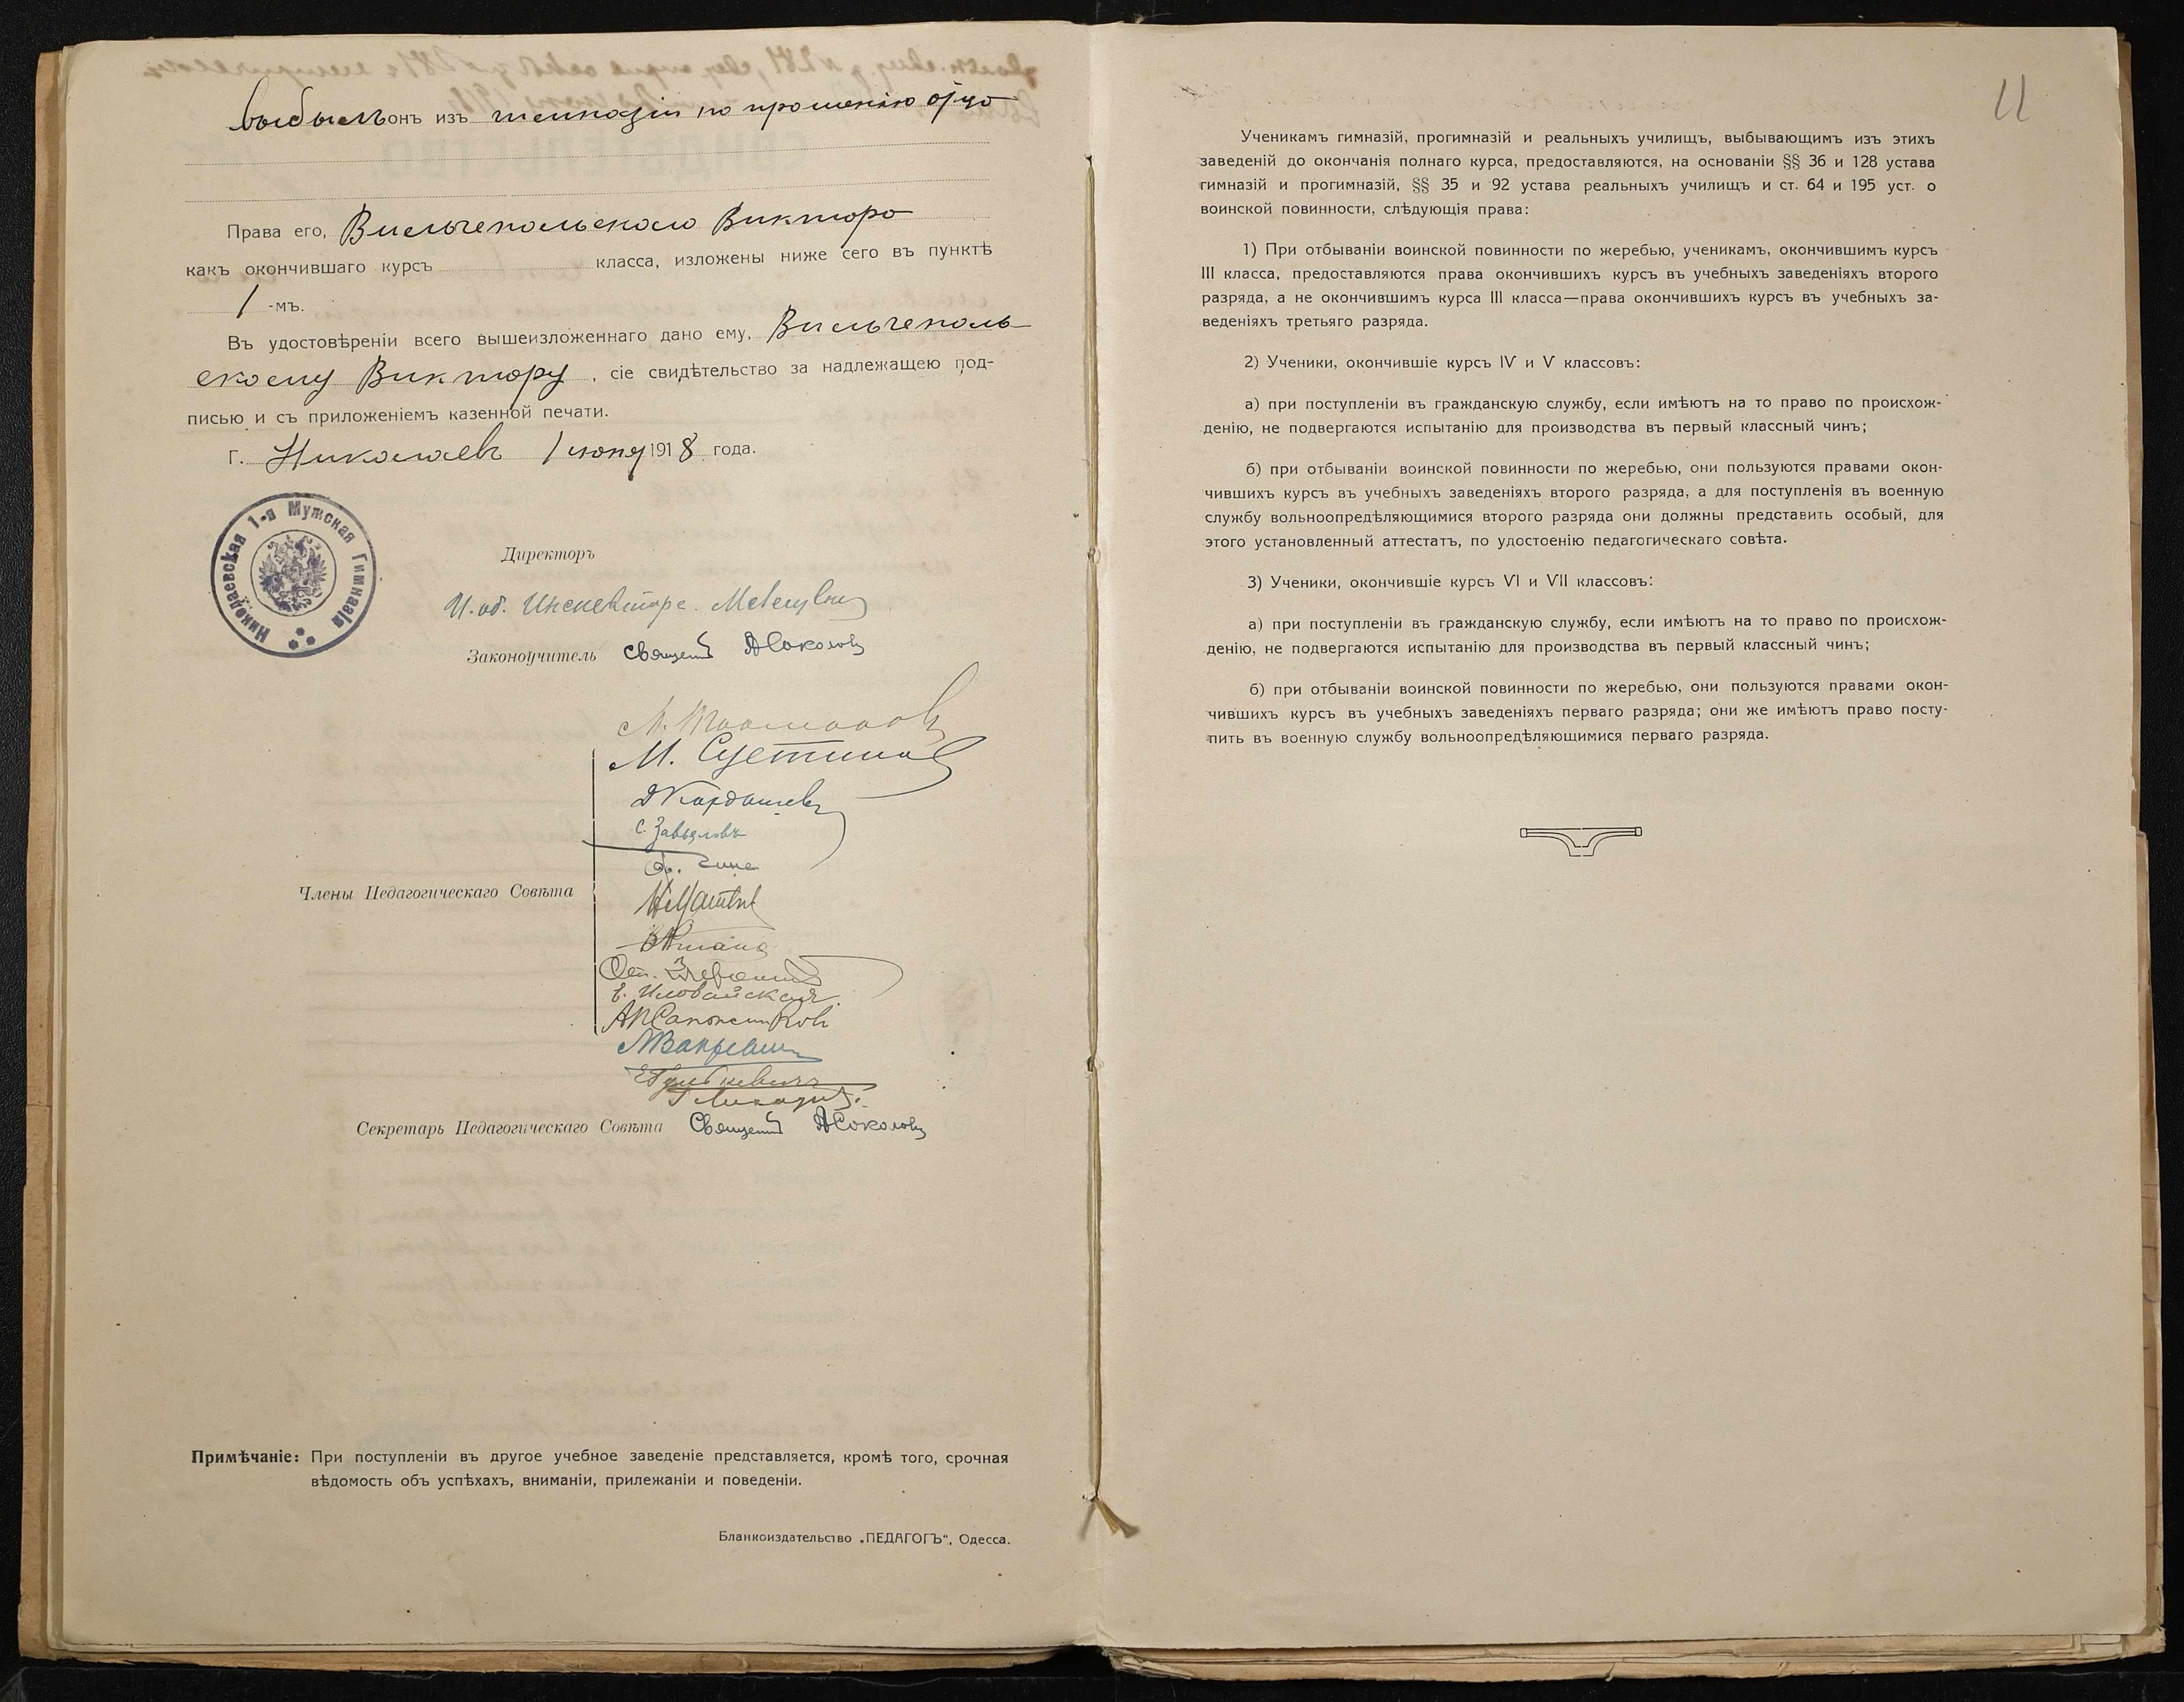 выбылъ онъ изъ гимназіи по прошенію отца
Права его, Вильчепольскаго Виктора
какъ окончившаго курсъ класса, изложены ниже сего въ пунктѣ
1 -мъ.
Въ удостовѣреніи всего вышеизложеннаго дано ему, Вильчеполь-
скому Виктору, сіе свидѣтельство за надлежащею под-
писью и съ приложеніемъ казенной печати.
г. Николаевъ 1 іюня 1918 года.
Николаевская 1-я Мужская Гимназія
Директоръ
И. об. Инспектора
Законоучитель Священ. А Соколовъ
М. Сцетинов
Д Кардашевъ
С. Завьяловъ
Члены Педагогическаго Совѣта
Е. Иловайская
АП Сапожниковъ
Секретарь Педагогическаго Совѣта Священ. А Соколовъ
Примѣчаніе: При поступленіи въ другое учебное заведеніе представляется, кромѣ того, срочная
вѣдомость объ успѣхахъ, вниманіи, прилежаніи и поведеніи.
Бланкоиздательство „ПЕДАГОГЪ“, Одесса.
11
Ученикамъ гимназій, прогимназій и реальныхъ училищъ, выбывающимъ изъ этихъ
заведеній до окончанія полнаго курса, предоставляются, на основаніи §§ 36 и 128 устава
гимназій и прогимназій, §§ 35 и 92 устава реальныхъ училищъ и ст. 64 и 195 уст. о
воинской повинности, слѣдующія права:
1) При отбываніи воинской повинности по жеребью, ученикамъ, окончившимъ курсъ
III класса, предоставляются права окончившихъ курсъ въ учебныхъ заведеніяхъ второго
разряда, а не окончившимъ курса III класса—права окончившихъ курсъ въ учебныхъ за-
веденіяхъ третьяго разряда.
2) Ученики, окончившіе курсъ IV и V классовъ:
а) при поступленіи въ гражданскую службу, если имѣютъ на то право по происхож-
денію, не подвергаются испытанію для производства въ первый классный чинъ;
б) при отбываніи воинской повинности по жеребью, они пользуются правами окон-
чившихъ курсъ въ учебныхъ заведеніяхъ второго разряда, а для поступленія въ военную
службу вольноопредѣляющимися второго разряда они должны представить особый, для
этого установленный аттестатъ, по удостоенію педагогическаго совѣта.
3) Ученики, окончившіе курсъ VI и VII классовъ:
а) при поступленіи въ гражданскую службу, если имѣютъ на то право по происхож-
денію, не подвергаются испытанію для производства въ первый классный чинъ;
б) при отбываніи воинской повинности по жеребью, они пользуются правами окон-
чившихъ курсъ въ учебныхъ заведеніяхъ перваго разряда; они же имѣютъ право посту-
пить въ военную службу вольноопредѣляющимися перваго разряда.